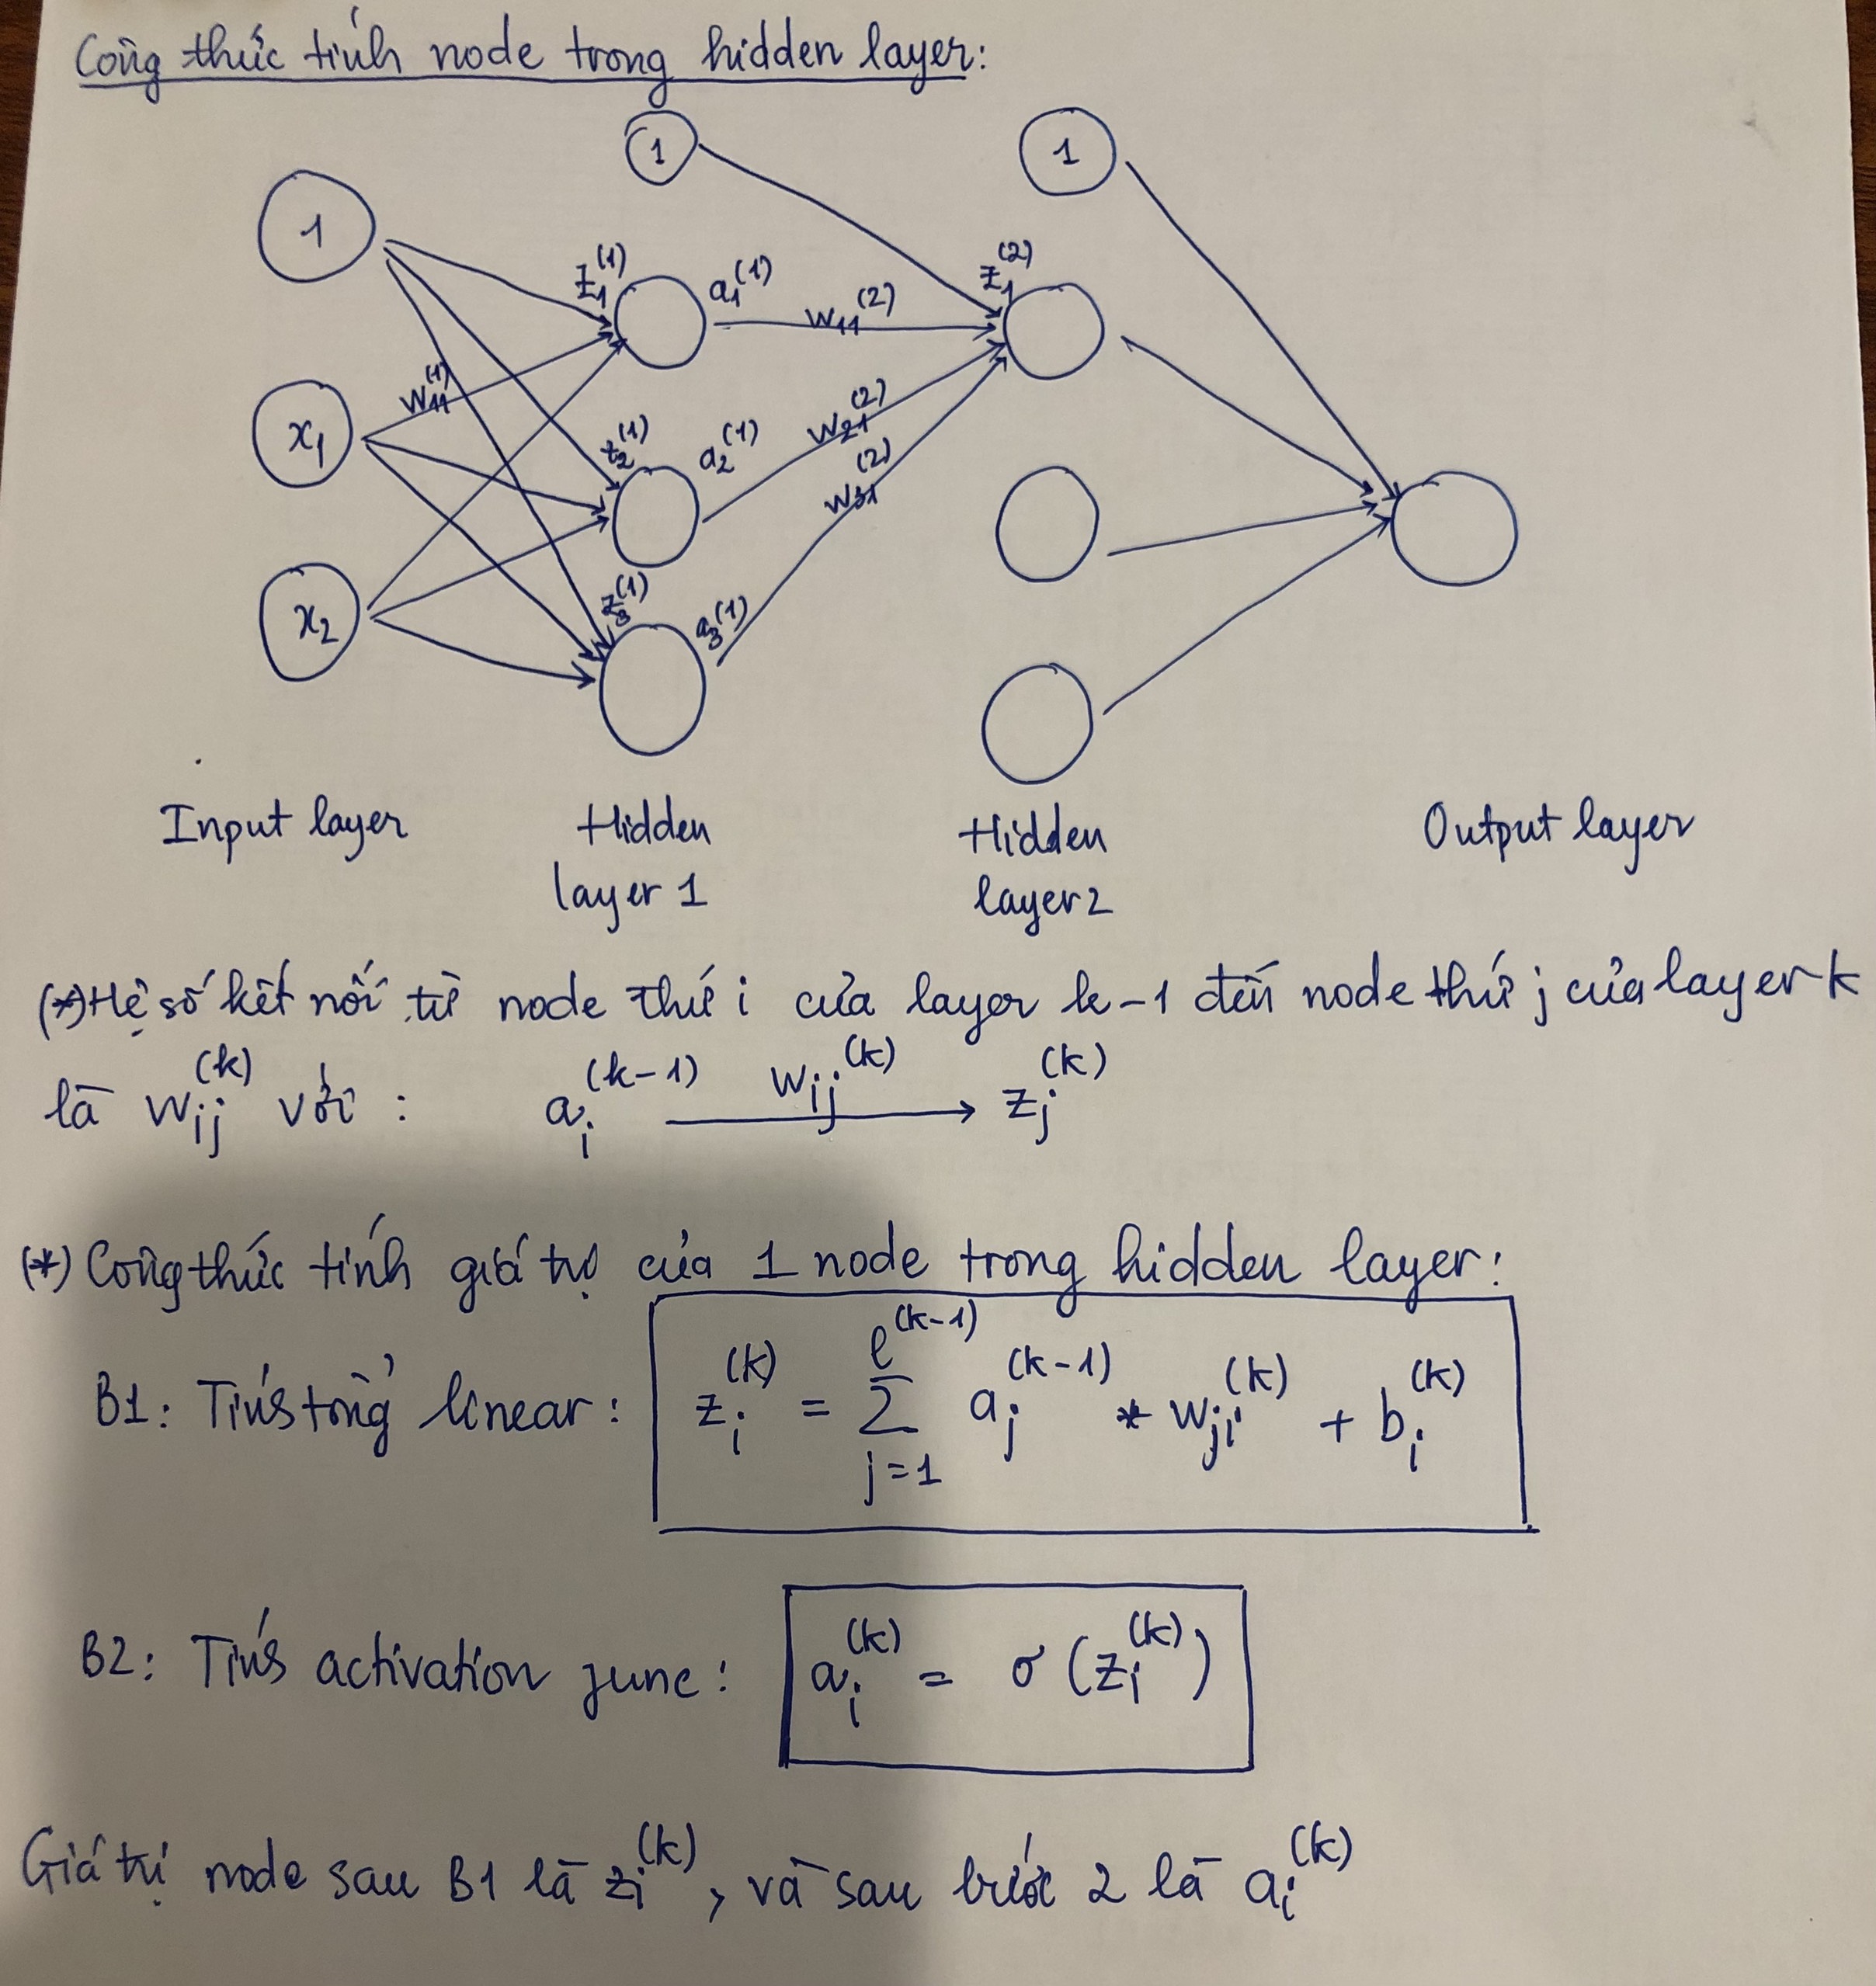 Công thức tính node trong hidden layer:
1 1
1
z₁⁽¹⁾ a₁⁽¹⁾ w₁₁⁽²⁾ z₁⁽²⁾
x₁ w₁₁⁽¹⁾
z₂⁽¹⁾ a₂⁽¹⁾ w₂₁⁽²⁾
w₃₁⁽²⁾
x₂ z₃⁽¹⁾ a₃⁽¹⁾
Input layer Hidden layer 1 Hidden layer 2 Output layer
(*) Hệ số kết nối từ node thứ i của layer k-1 đến node thứ j của layer k
là w_ij^(k) với : a_i^(k-1) → w_ij^(k) z_j^(k)
(*) Công thức tính giá trị của 1 node trong hidden layer:
B1: Tính tổng linear: z_i^(k) = Σ_{j=1}^{l^(k-1)} a_j^(k-1) * w_ji^(k) + b_i^(k)
B2: Tính activation func: a_i^(k) = σ(z_i^(k))
Giá trị node sau B1 là z_i^(k), và sau bước 2 là a_i^(k)